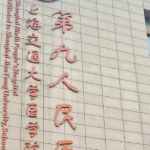 第九人民医
上海交通大学医学院
Shanghai Ninth People's Hospital
Affiliated to Shanghai JiaoTong University, School